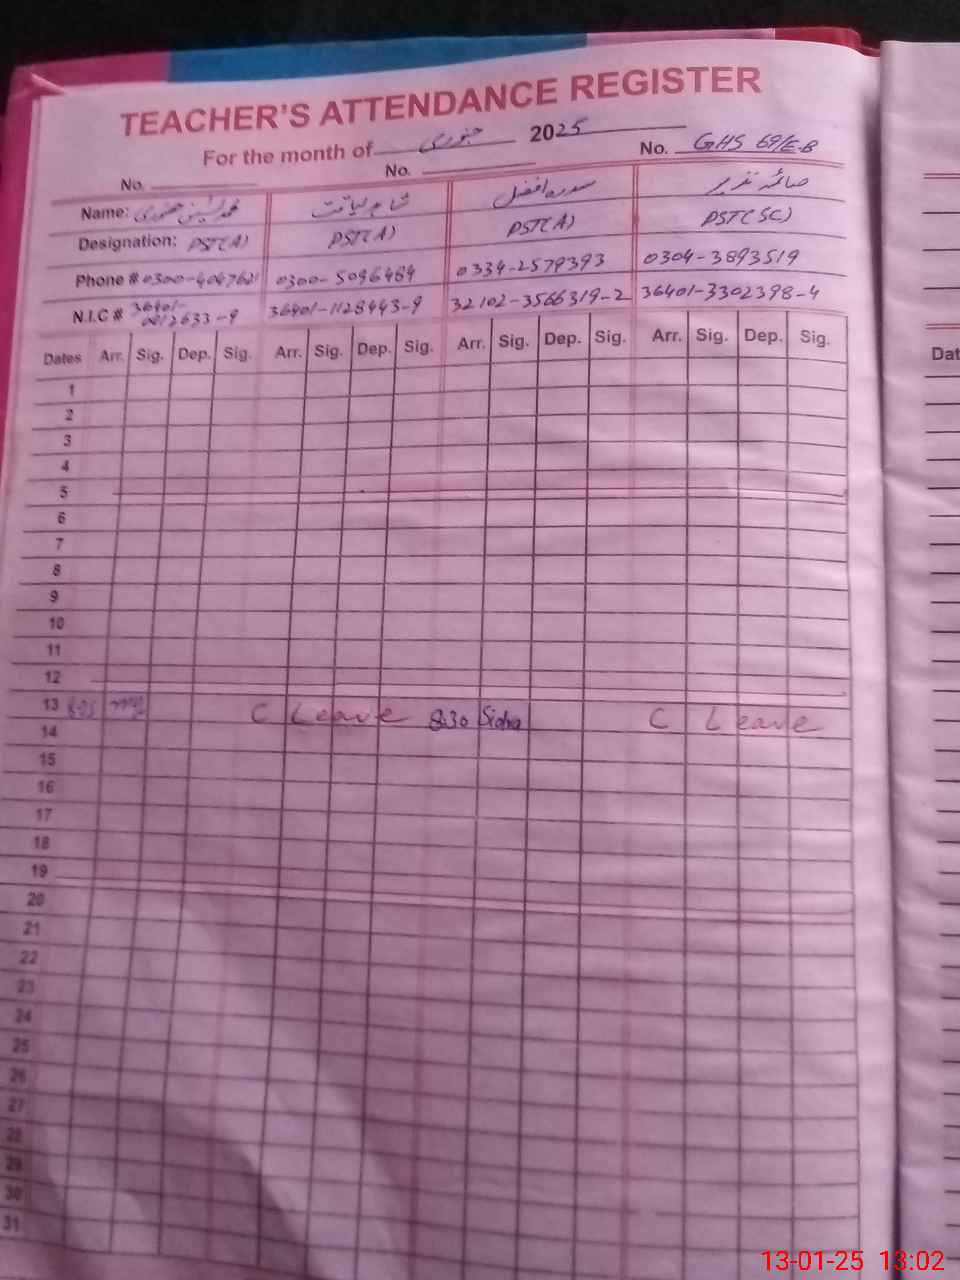 TEACHER'S ATTENDANCE REGISTER
For the month of جنوری 2025 No. GHS 69/E.B
No. No.
Name: محمد یٰسین شاہد لیاقت سدرہ افضل صائمہ نذیر
Designation: PST(A) PST(A) PST(A) PST(SC)
Phone # 0300-4047621 0300-5096489 0334-2579393 0304-3893519
N.I.C # 36401-0812633-9 36401-1128443-9 32102-3566319-2 36401-3302398-4
Dates Arr. Sig. Dep. Sig. Arr. Sig. Dep. Sig. Arr. Sig. Dep. Sig. Arr. Sig. Dep. Sig.
1
2
3
4
5
6
7
8
9
10
11
12
13 C Leave 8:30 Sidra C Leave
14
15
16
17
18
19
20
21
22
23
24
25
26
27
28
29
30
31
Dat
13-01-25 13:02